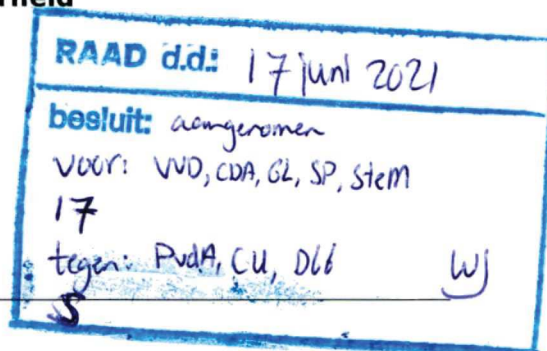 RAAD d.d.: 17 juni 2021
besluit: aangenomen
voor: VVD, CDA, GL, SP, Stem
17
tegen: PvdA, CU, D66
5